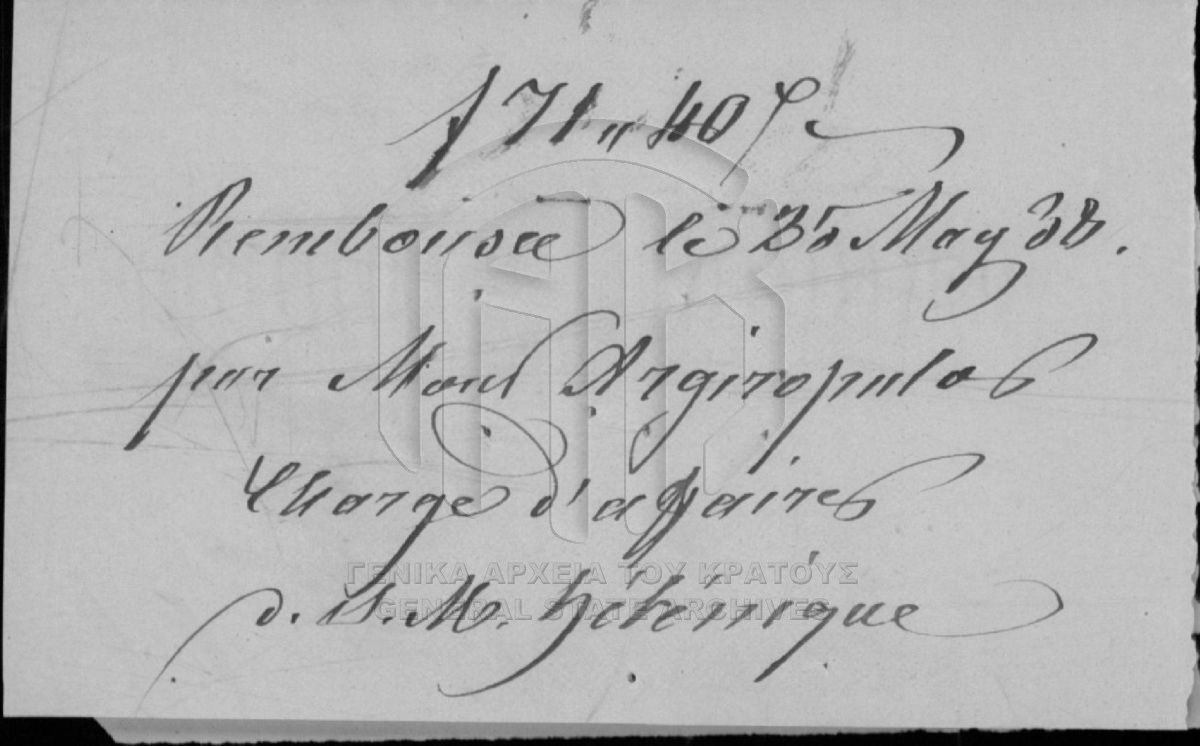 f 71 „ 40
Remboursée le 25 May 38.
par Monsˢ Argiropulos
Charge d'affaires
d. S. M. héllénique
ΓΕΝΙΚΑ ΑΡΧΕΙΑ ΤΟΥ ΚΡΑΤΟΥΣ
GENERAL STATE ARCHIVES